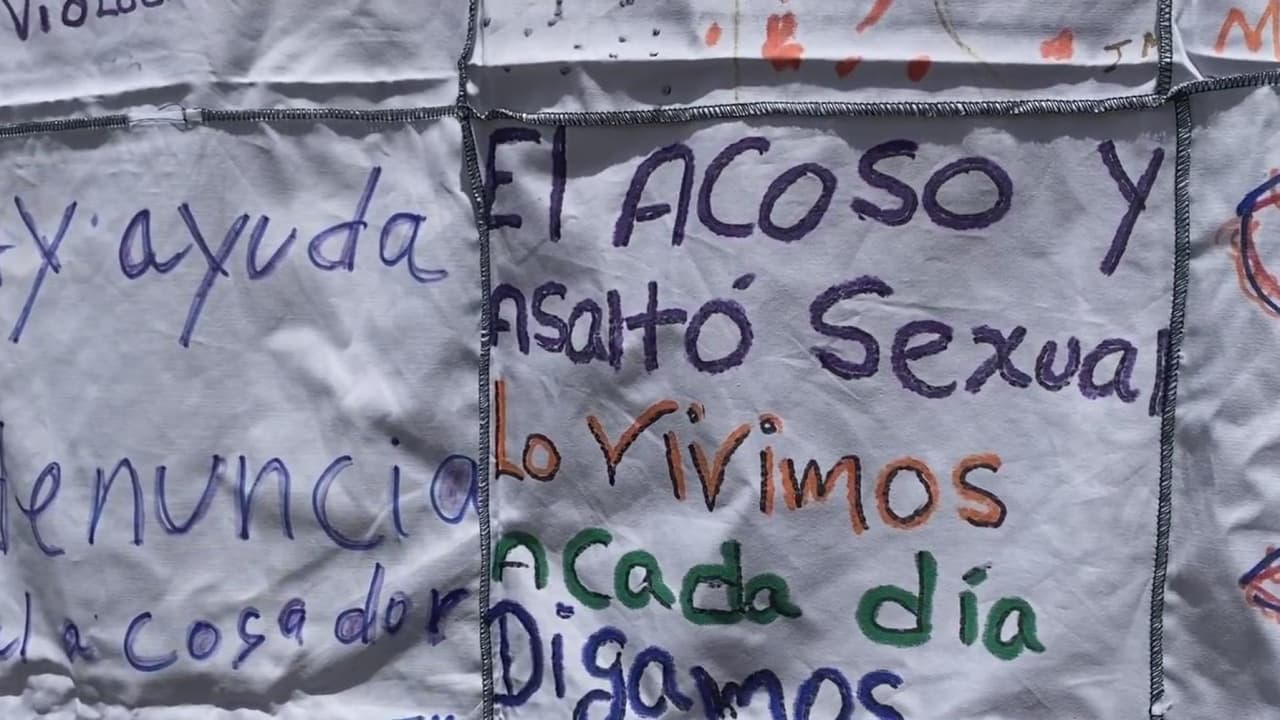 y ayuda
denuncia
acosador
El ACOSO Y
Asaltó Sexual
Lo Vivimos
A Cada día
Digamos